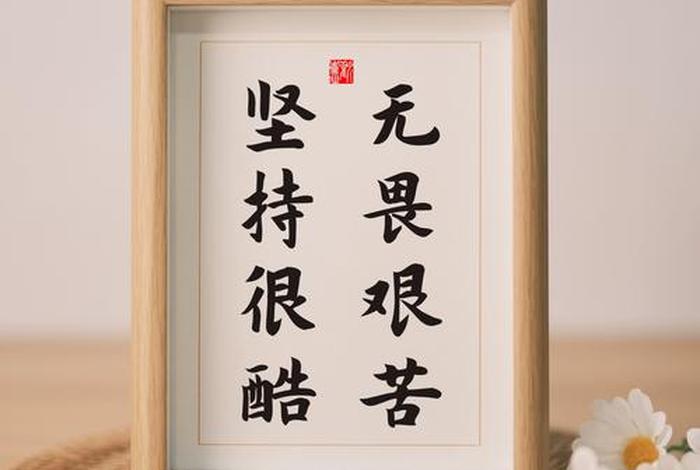 无畏艰苦
坚持很酷